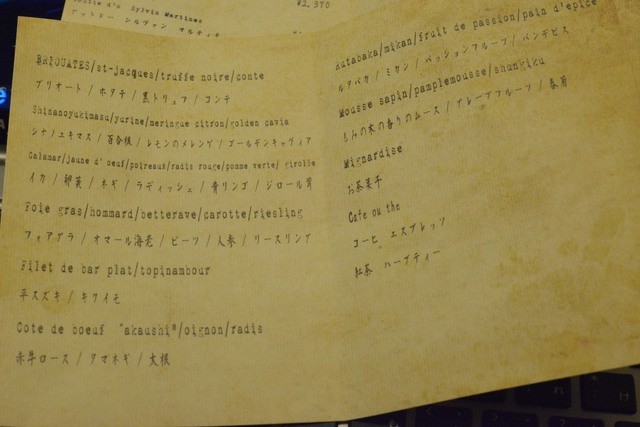 Sylvin Martinez
シルヴァン マルティネ
¥2,370
BRIOUATES/st-jacques/truffe noire/conte
ブリオート / ホタテ / 黒トリュフ / コンテ
Shinanoyukimasu/yurine/meringue citron/golden cavia
シナノユキマス / 百合根 / レモンのメレンゲ / ゴールデンキャヴィア
Calamar/jaune d' oeuf/poireaux/radis rouge/pomme verte/ girolle
イカ / 卵黄 / ネギ / ラディッシュ / 青リンゴ / ジロール茸
Foie gras/hommard/betterave/carotte/riesling
フォアグラ / オマール海老 / ビーツ / 人参 / リースリング
Filet de bar plat/topinambour
平スズキ / キクイモ
Cote de boeuf "akaushi"/oignon/radis
赤牛ロース / タマネギ / 大根
Rutabaka/mikan/fruit de passion/pain d'epice
ルタバカ / ミカン / パッションフルーツ / パンデピス
Mousse sapin/pamplemousse/shungiku
もみの木の香りのムース / グレープフルーツ / 春菊
Mignardise
お茶菓子
Cafe ou the
コーヒー エスプレッソ
紅茶 ハーブティー